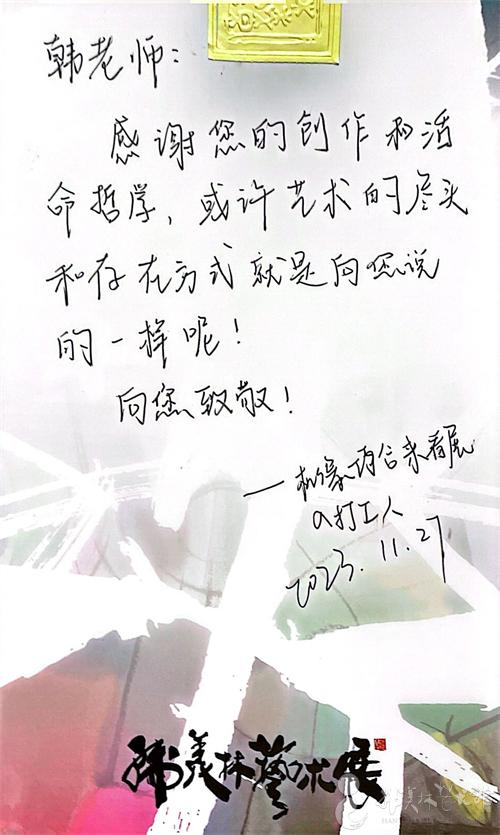 韩老师：
感谢您的创作和活
命哲学，或许艺术的尽头
和存在方式就是向您说
的一样呢！
向您致敬！
——机缘巧合来看展
的打工人
2023.11.27
韩美林藝术展